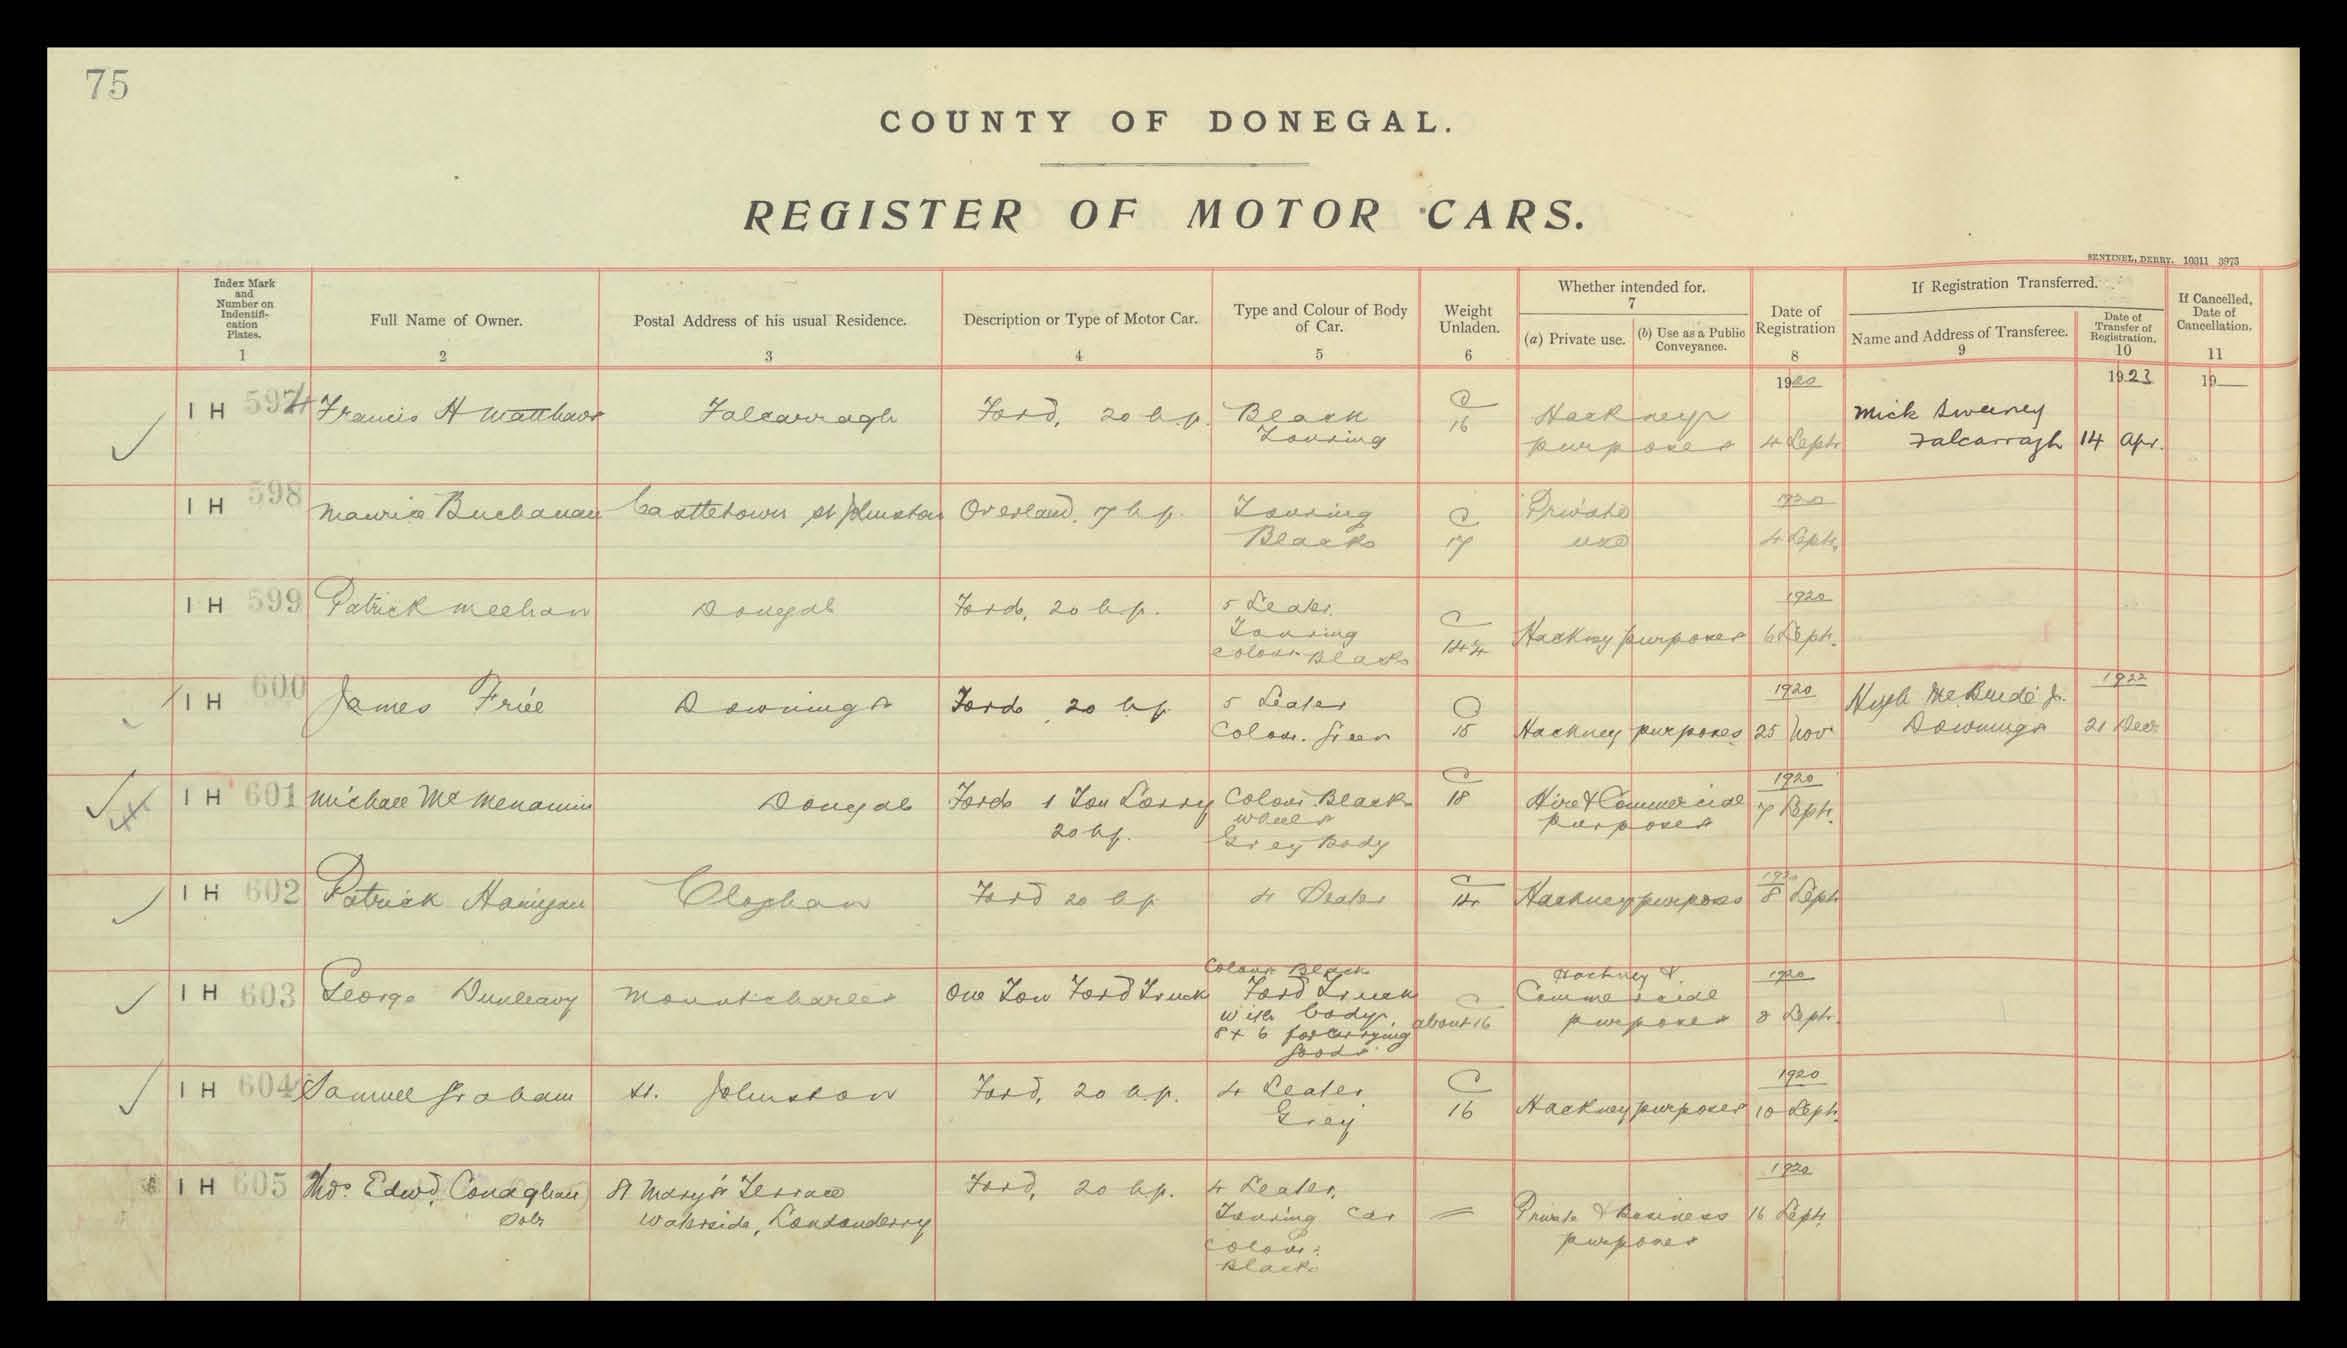 75
COUNTY OF DONEGAL.
REGISTER OF MOTOR CARS.
SENTINEL, DERRY. 10311 3973
Index Mark and Number on Indentifi- cation Plates. 1
Full Name of Owner. 2
Postal Address of his usual Residence. 3
Description or Type of Motor Car. 4
Type and Colour of Body of Car. 5
Weight Unladen. 6
Whether intended for. 7
(a) Private use.
(b) Use as a Public Conveyance.
Date of Registration 8
If Registration Transferred.
Name and Address of Transferee. 9
Date of Transfer of Registration. 10
If Cancelled, Date of Cancellation. 11
1920 1923 19
I H 597 Francis H Matthews Falcarragh Ford, 20 h.p. Black C Hackney Mick Sweeney
Touring 16 purposes 4 Septr Falcarragh 14 Apr.
I H 598 Maurice Buchanan Castletown St Johnston Overland, 7 h.p. Touring C Private 1920
Black 17 use 4 Septr.
I H 599 Patrick Meehan Donegal Ford, 20 h.p. 5 Seater. C 1920
Touring 14¾ Hackney purposes 6 Septr.
Colour Black
I H 600 James Friel Downings Ford 20 h.p. 5 Seater C 1920 Hugh McBride Jr. 1922
Colour. Green 15 Hackney purposes 25 Nov Downings 21 Decr
I H 601 Michael McMenamin Donegal Ford 1 Ton Lorry Colour Black C Hire & Commercial 1920
20 h.p. wheels 18 purposes 7 Septr.
Grey Body
I H 602 Patrick Hanigan Cloghan Ford 20 h.p. 4 Seater C 14 Hackney purposes 1920 8 Septr
I H 603 George Dunleavy Mountcharles One Ton Ford Truck Colour Black C Hackney & 1920
Ford Truck about 16 Commercial
with body purposes 8 Septr.
8 x 6 for carrying
goods
I H 604 Samuel Graham St. Johnston Ford, 20 h.p. 4 Seater C 1920
Grey 16 Hackney purposes 10 Septr.
I H 605 Thos Edwd. Conaghan St Mary's Terrace Ford, 20 h.p. 4 Seater, 1920
Solr Waterside, Londonderry Touring Car = Private & Business 16 Septr.
Colour: purposes
Black